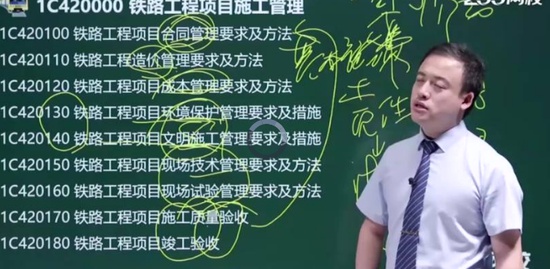 1C420000 铁路工程项目施工管理
1C420100 铁路工程项目合同管理要求及方法
1C420110 铁路工程造价管理要求及方法
1C420120 铁路工程项目成本管理要求及方法
1C420130 铁路工程项目环境保护管理要求及措施
1C420140 铁路工程项目文明施工管理要求及措施
1C420150 铁路工程项目现场技术管理要求及方法
1C420160 铁路工程项目现场试验管理要求及方法
1C420170 铁路工程项目施工质量验收
1C420180 铁路工程项目竣工验收